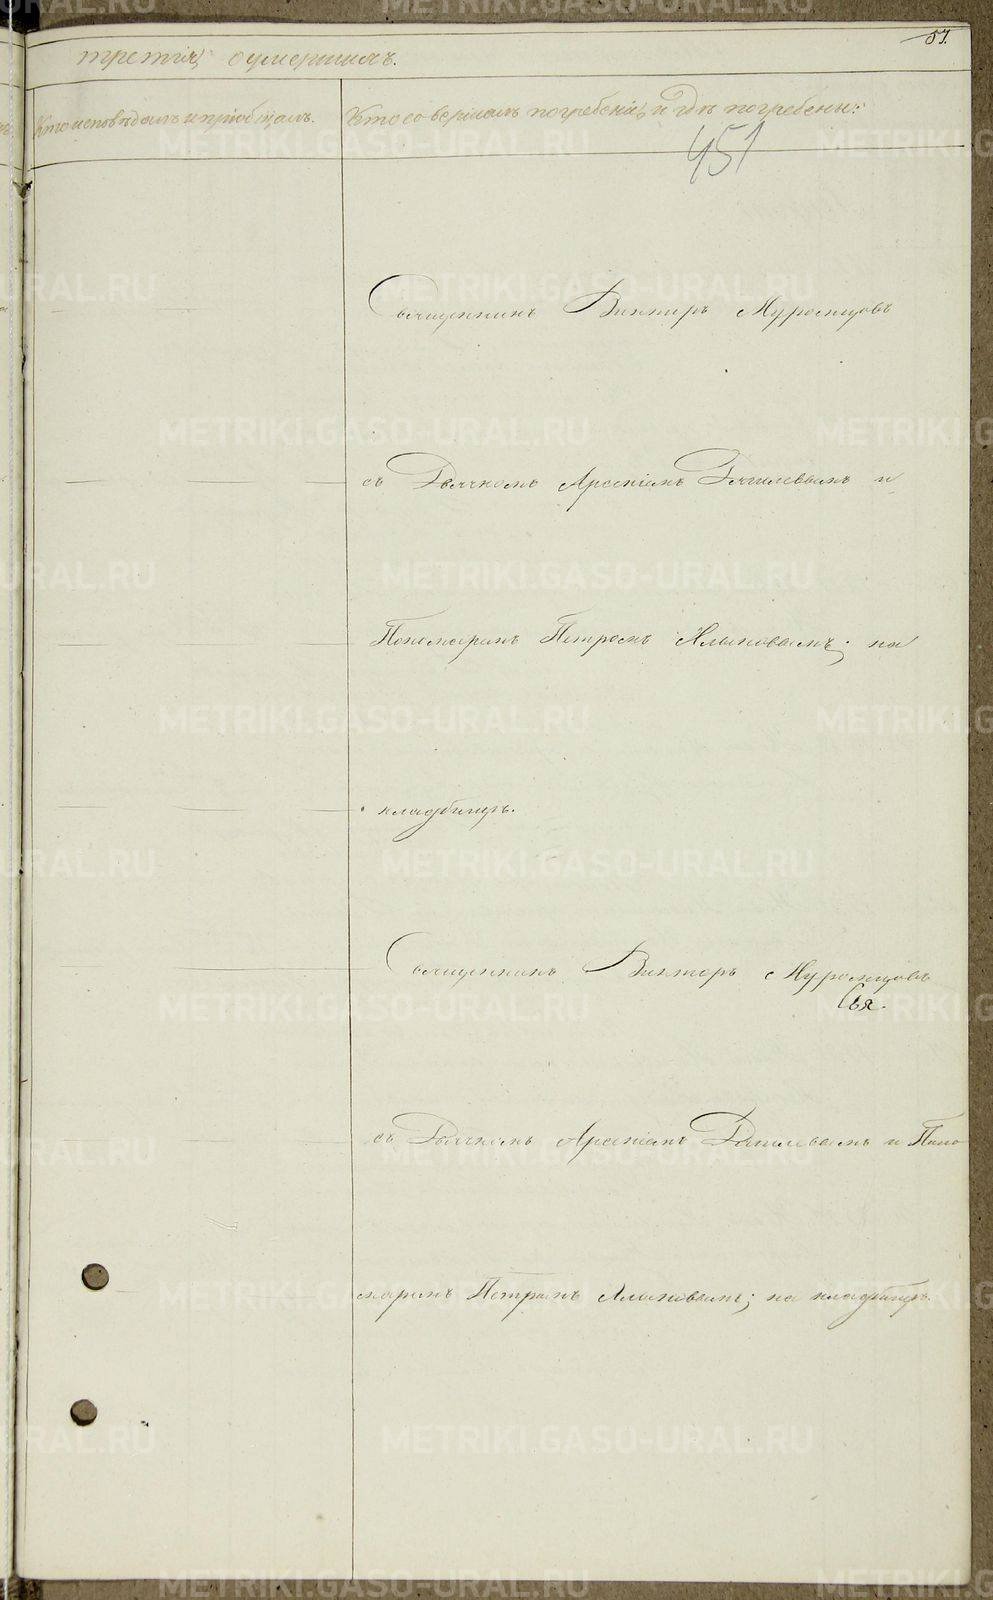 57.
третія, о умершихъ.
Кто исповѣдалъ и пріобщалъ.
Кто совершалъ погребеніе, и гдѣ погребены:
451
Священникъ Викторъ Муромцовъ
съ Дьячкомъ Арсеніемъ и
Пономаремъ Петромъ Алыповымъ; на
кладбищѣ.
Священникъ Викторъ Муромцовъ
съ Дьячкомъ Арсеніемъ и Поно
маремъ Петромъ Алыповымъ; на кладбищѣ.
METRIKI.GASO-URAL.RU